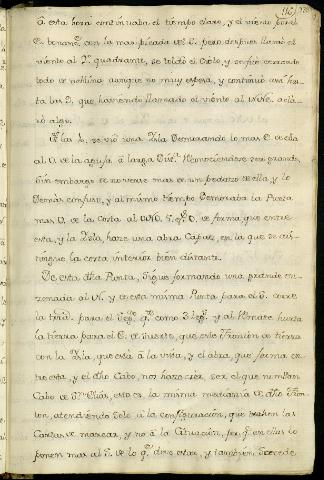 A esta hora continuaba el tiempo claro, y el viento por el
E. bonanc.e con la mar picada del E. pero despues llamó el
viento al 2.º quadrante, se toldó el Cielo, y se fue cerrando
todo de neblina aunque no muy espesa, y continuó asi has-
ta las 3, que haviendo llamado el viento al NNE. acla-
ró algo.
A las se vió una Isla Demorando lo mas E. de ella
al O. de la aguja á larga Dist.ª Manifestandose ser grande,
sin embargo de no verse mas de un pedazo de ella, y lo
demas confuso, y al mismo tiempo Demoraba la Punta
mas O. de la Costa al ONO. 5.º O. de forma, que entre
esta, y la Isla, haze una abra Capáz, en la que se dis-
tingue la costa interior bien distante.
De esta dha Punta, sigue formando una grande en-
senada al N. y de esta misma Punta para el E. corre
la tierra para el y al Remate hurta
la tierra para el E. de suerte, que este Fronton de tierra
con la Isla, que está á la vista, y el abra, que forma en-
tre esta, y el dho Cabo, nos haze ser el que nombran
Cabo de S.n Elias, esto es la misma medianía de dho Fron-
ton, atendiendo solo á la configuracion, que trahen las
Cartas de marear, y no á la situacion, por q.e en ellas lo
ponen mas al S. de lo q.e dire estar, y tambien